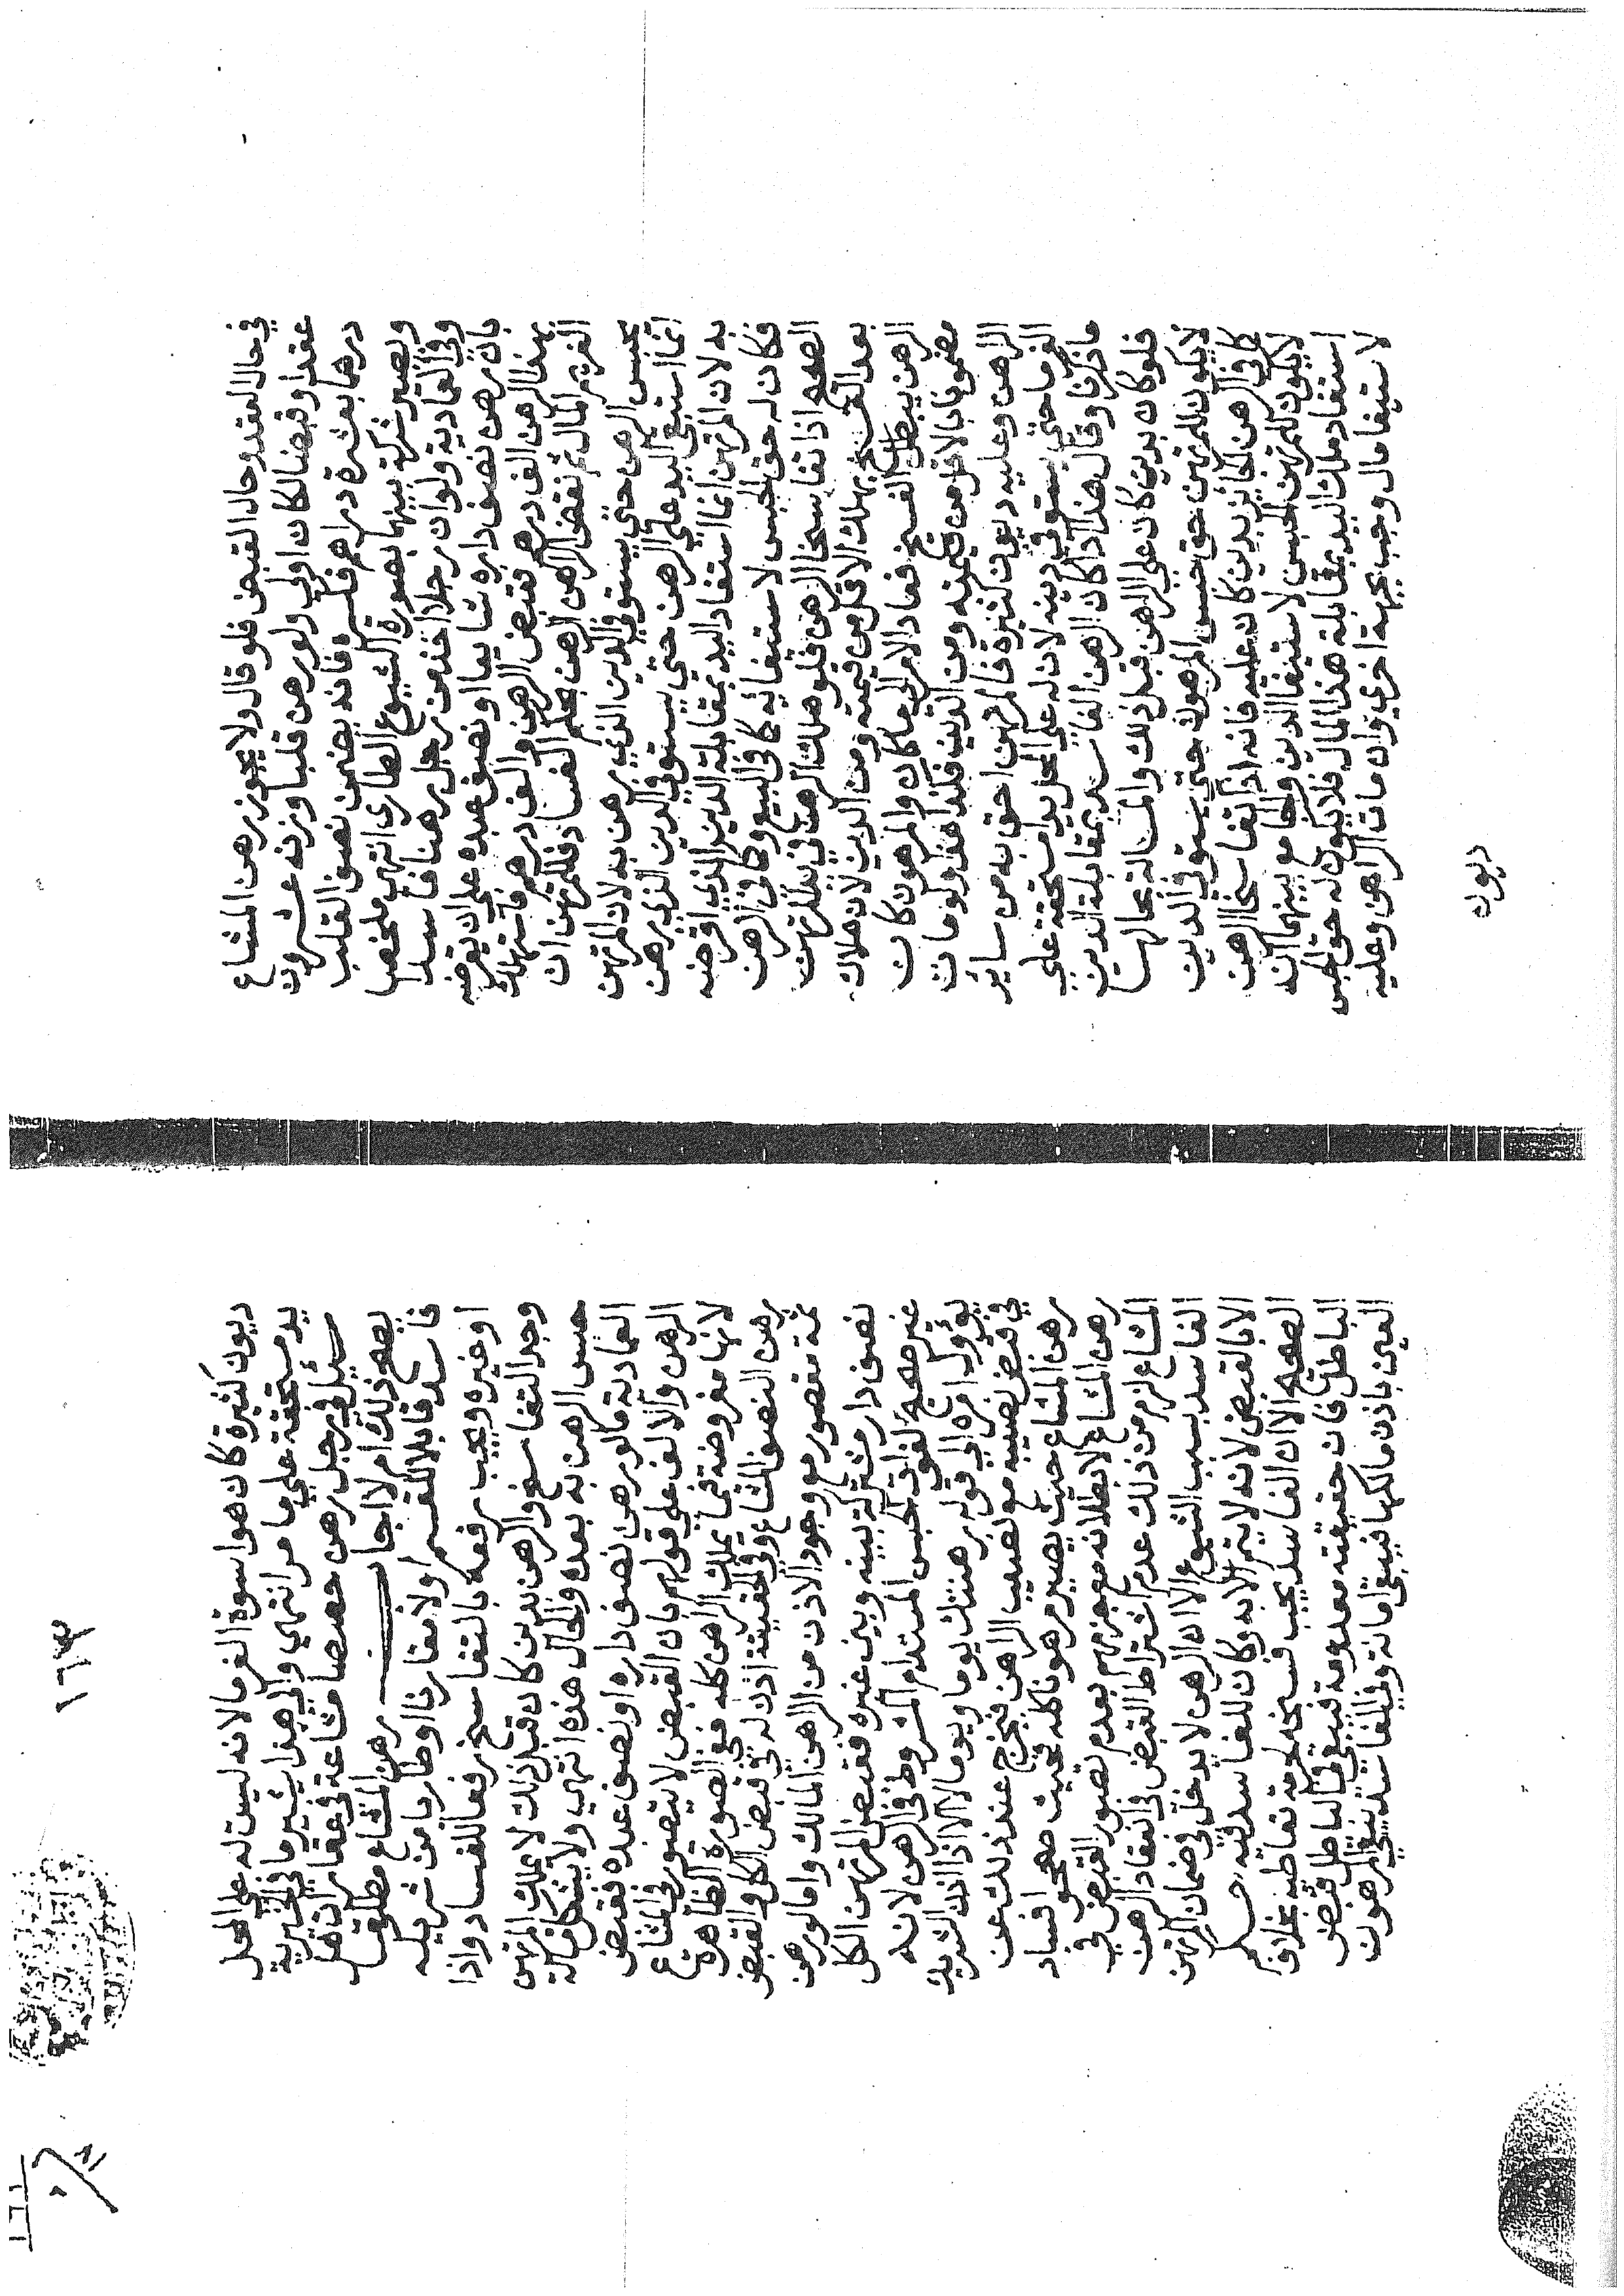 في حال العقد وحال القبض فلو قال ولا يجوز رهن المشاع
عقدا وقبضا لكان اولي ولو رهن قلبا وزنه عشرون
درهما بعشرة دراهم فكسره فانه يضمن نصف القلب
ويصير شركة بينهما بصورة الشيوع الطاري انتهى ملخصا
وفي العمادية ولو ان رجلا اخذ من رجل رهنا فاسدا
بان رهن نصف داره شايعا او نصف عبده علي ان يقرضه
بهذا الرهن الف درهم فقبض الرهن والف درهم فاستهلك
الغريم المال ثم نقض الراهن الرهن بحكم الفساد فللمرتهن ان
يحبس الرهن حتي يستوفي الدين الذي رهن به لان المرتهن
انما استبقي اليد علي الرهن حتي يستوفي الدين الذي رهن
به لان المرتهن انما استفاد اليد بمقابلة الدين الذي اقرضه
فكان له حق الحبس لاستيفائه كما في البيع وكما في الرهن
الصحيح اذا تفاسخا الرهن فلو هلك الرهن في يد المرتهن
بعد الفسخ يهلك بالاقل من قيمته ومن الدين لان هلاك
الرهن يبطل الفسخ فعاد الامر الي ما كان والمرهون كان
مضمونا بالاقل من قيمته ومن الدين فكذا هذا ولو مات
الراهن وعليه ديون كثيرة فالمرتهن احق به من ساير
الغرما حتي يستوفي دينه لان له علي المحل يدا مستحقة علي
ما ذكرنا وقال هذا اذا كان الرهن الفاسد بمقابلة الدين
فلو كان بدين كان علي الراهن قبل ذلك والمسالة بحالها
لا يكون للمرتهن حق حبس المرهون حتي يستوفي الدين
كما في الرهن الجائز بدين كان عليه فانه اذا تفاسخا الرهن
لا يكون للمرتهن الحبس لاستيفا الدين والجامع بينهما انه
استفاد ملك اليد بمقابلة هذا المال فلا يكون له حق الحبس
لاستيفا مال وجب بجهة اخري وان مات الراهن وعليه
ديون
١٦٣
ديون كثيرة كان هو اسوة الغرما لانه ليس له علي المحل
يد مستحقة علي ما مر انتهي والي هذا يشير ما في الخيرية
سئل في رجل رهن حصصا مشاعة في عقارات هل
يصح ذلك ام لا اجاب رهن المشاع مطلقا
فاسد قابلا للقسم او لا مقارنا او طاريا من شريكه
او غيره ويجب رفعه بالتفاسخ رفعا للفساد واذا
وجد التفاسخ والرهن بدين كان قبل ذلك لا يملك المرتهن
حبس الرهن به بعده والحال هذه انتهي ولا يشكل مسالة
العمادية ما لو رهن نصف داره او نصف عبده فقبض
الرهن والالف علي قولهم بان القبض لا يتصور في المشاع
لانها مفروضة فيما يملك الراهن كله ففي الصورة الظاهرة
رهن النصف المشاع وفي الحقيقة اذن له في قبض الكل والقبض
ثمة مقصور مع وجود الاذن من الراهن المالك واما لو رهن
نصف دار مشتركة بينه وبين غيره فقبض المرتهن الكل
غير صحيح لفوات الحبس المستدام المشروط في الرهن لانه
يؤول امره الي قوله رهنتك يوما ويوما لا الا اذا اذن الشريك
في قبض نصيبه مع نصيب الراهن فيخرج عند ذلك عن
رهن المشاع حيث يصير مرهونا كله فحيث صححوا فساد
رهن المشاع لا بطلانه مع جزمهم بعدم تصور القبض في
المشاع لزم من ذلك عدم اشتراط القبض في انعقاد الرهن
الفاسد بسبب الشيوع الا ان الرهن لا يدخل في ضمان المرتهن
الا بالقبض لانه لا يتم الا به وكان للفاسد فيه حكم
الصحيح الا ان الفاسد يجب فسخه لحرمة تعاطيه بخلاف
الباطل فان حقيقته معدومة فيبقي في الباطل قبض
العين باذن مالكها فيبقي امانة وفي الفاسد يبقي المرهون